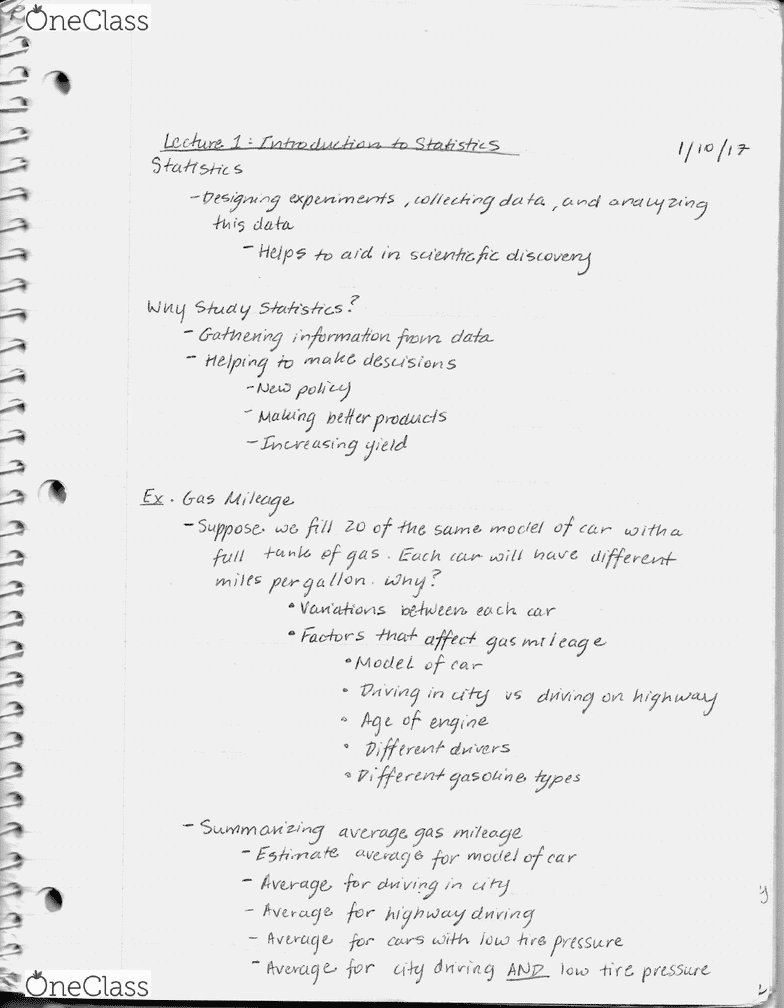 OneClass
Lecture 1: Introduction to Statistics 1/10/17
Statistics
- Designing experiments, collecting data, and analyzing
this data
- Helps to aid in scienticfic discovery
Why Study Statistics?
- Gathering information from data
- Helping to make descisions
- New policy
- Making better products
- Increasing yield
Ex. Gas Mileage
- Suppose we fill 20 of the same model of car with a
full tank of gas. Each car will have different
miles per gallon. Why?
• Variations between each car
• Factors that affect gas mileage
• Model of car
• Driving in city vs driving on highway
• Age of engine
• Different drivers
• Different gasoline types
- Summarizing average gas mileage
- Estimate average for model of car
- Average for driving in city
- Average for highway driving
- Average for cars with low tire pressure
- Average for city driving AND low tire pressure
OneClass